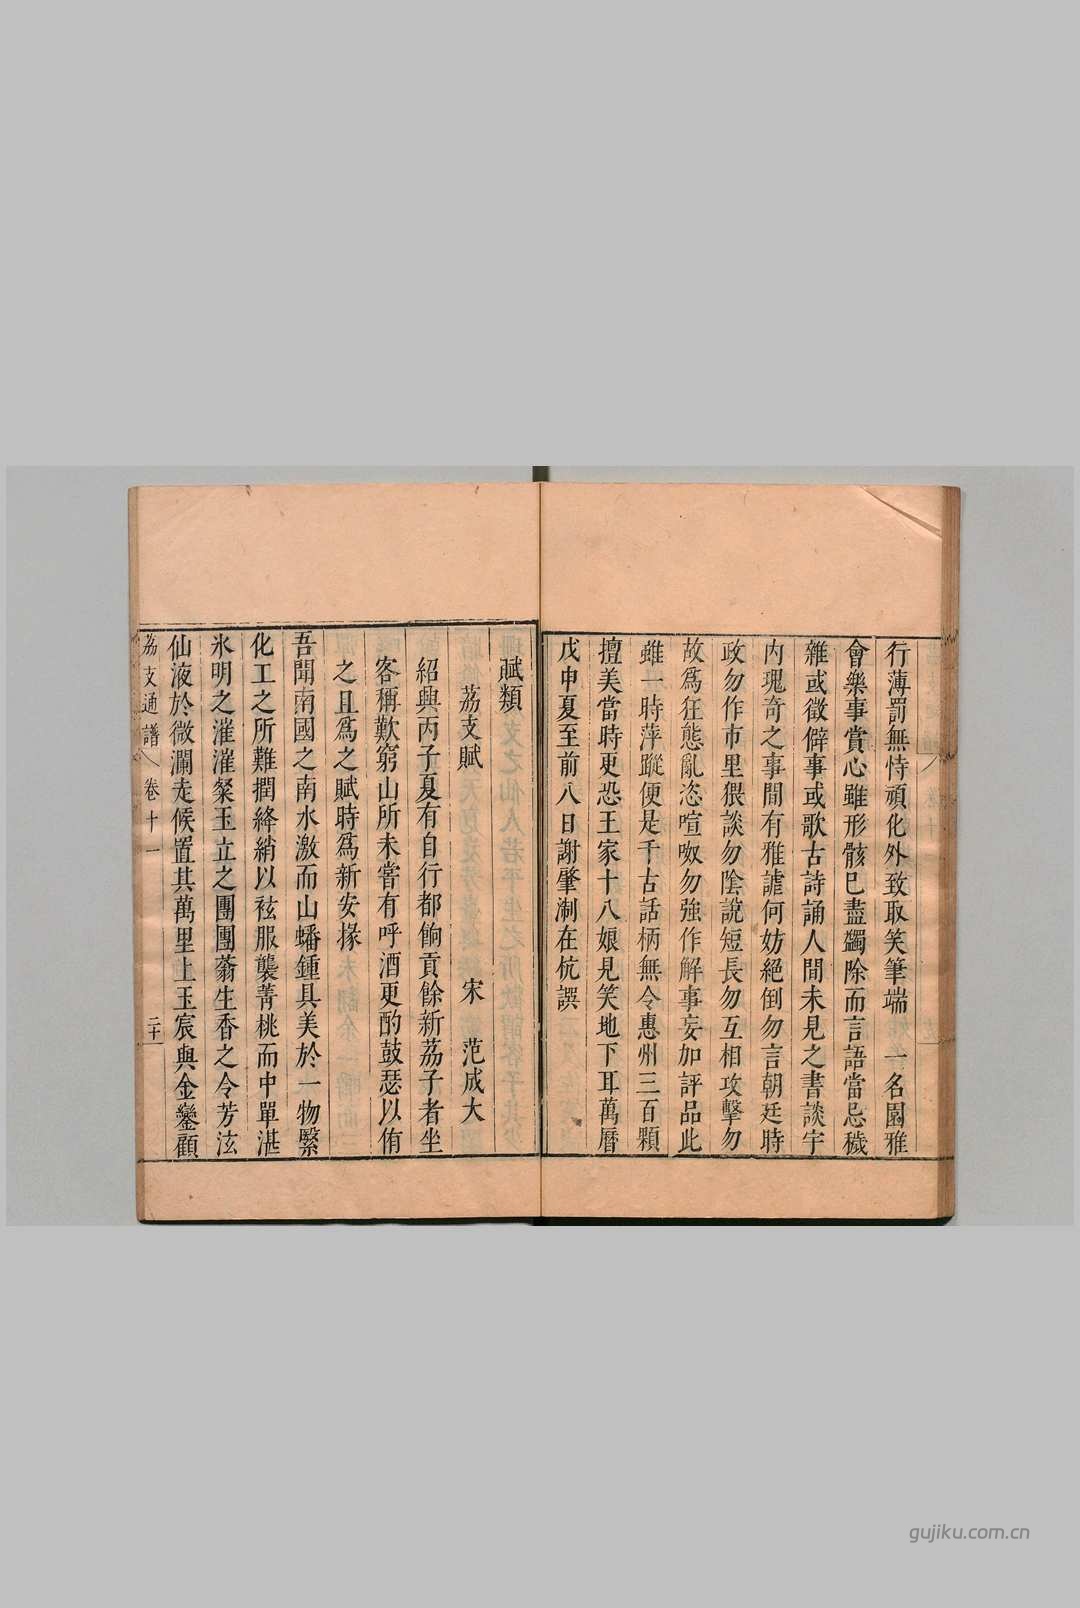 行薄罰無恃頑化外致取笑筆端一名園雅
會樂事賞心雖形骸已盡蠲除而言語當忌穢
雜或徵僻事或歌古詩誦人間未見之書談宇
內瑰奇之事間有雅謔何妨絕倒勿言朝廷時
政勿作市里猥談勿陰說短長勿互相攻擊勿
故爲狂態亂恣喧呶勿強作解事妄加評品此
雖一時萍蹤便是千古話柄無令惠州三百顆
擅美當時更恐王家十八娘見笑地下耳萬曆
戊申夏至前八日謝肇淛在杭譔
賦類
荔支賦 宋 范成大
紹興丙子夏有自行都餉貢餘新荔子者坐
客稱歎窮山所未嘗有呼酒更酌鼓瑟以侑
之且爲之賦時爲新安掾
吾聞南國之南水激而山蟠鍾具美於一物繄
化工之所難擱絳綃以袨服襲菁桃而中單湛
氷明之漼漼粲玉立之團團蓊生香之令芳泫
仙液於微瀾走候置其萬里上玉宸與金鑾顧
荔支通譜 卷十一 二十
gujiku.com.cn